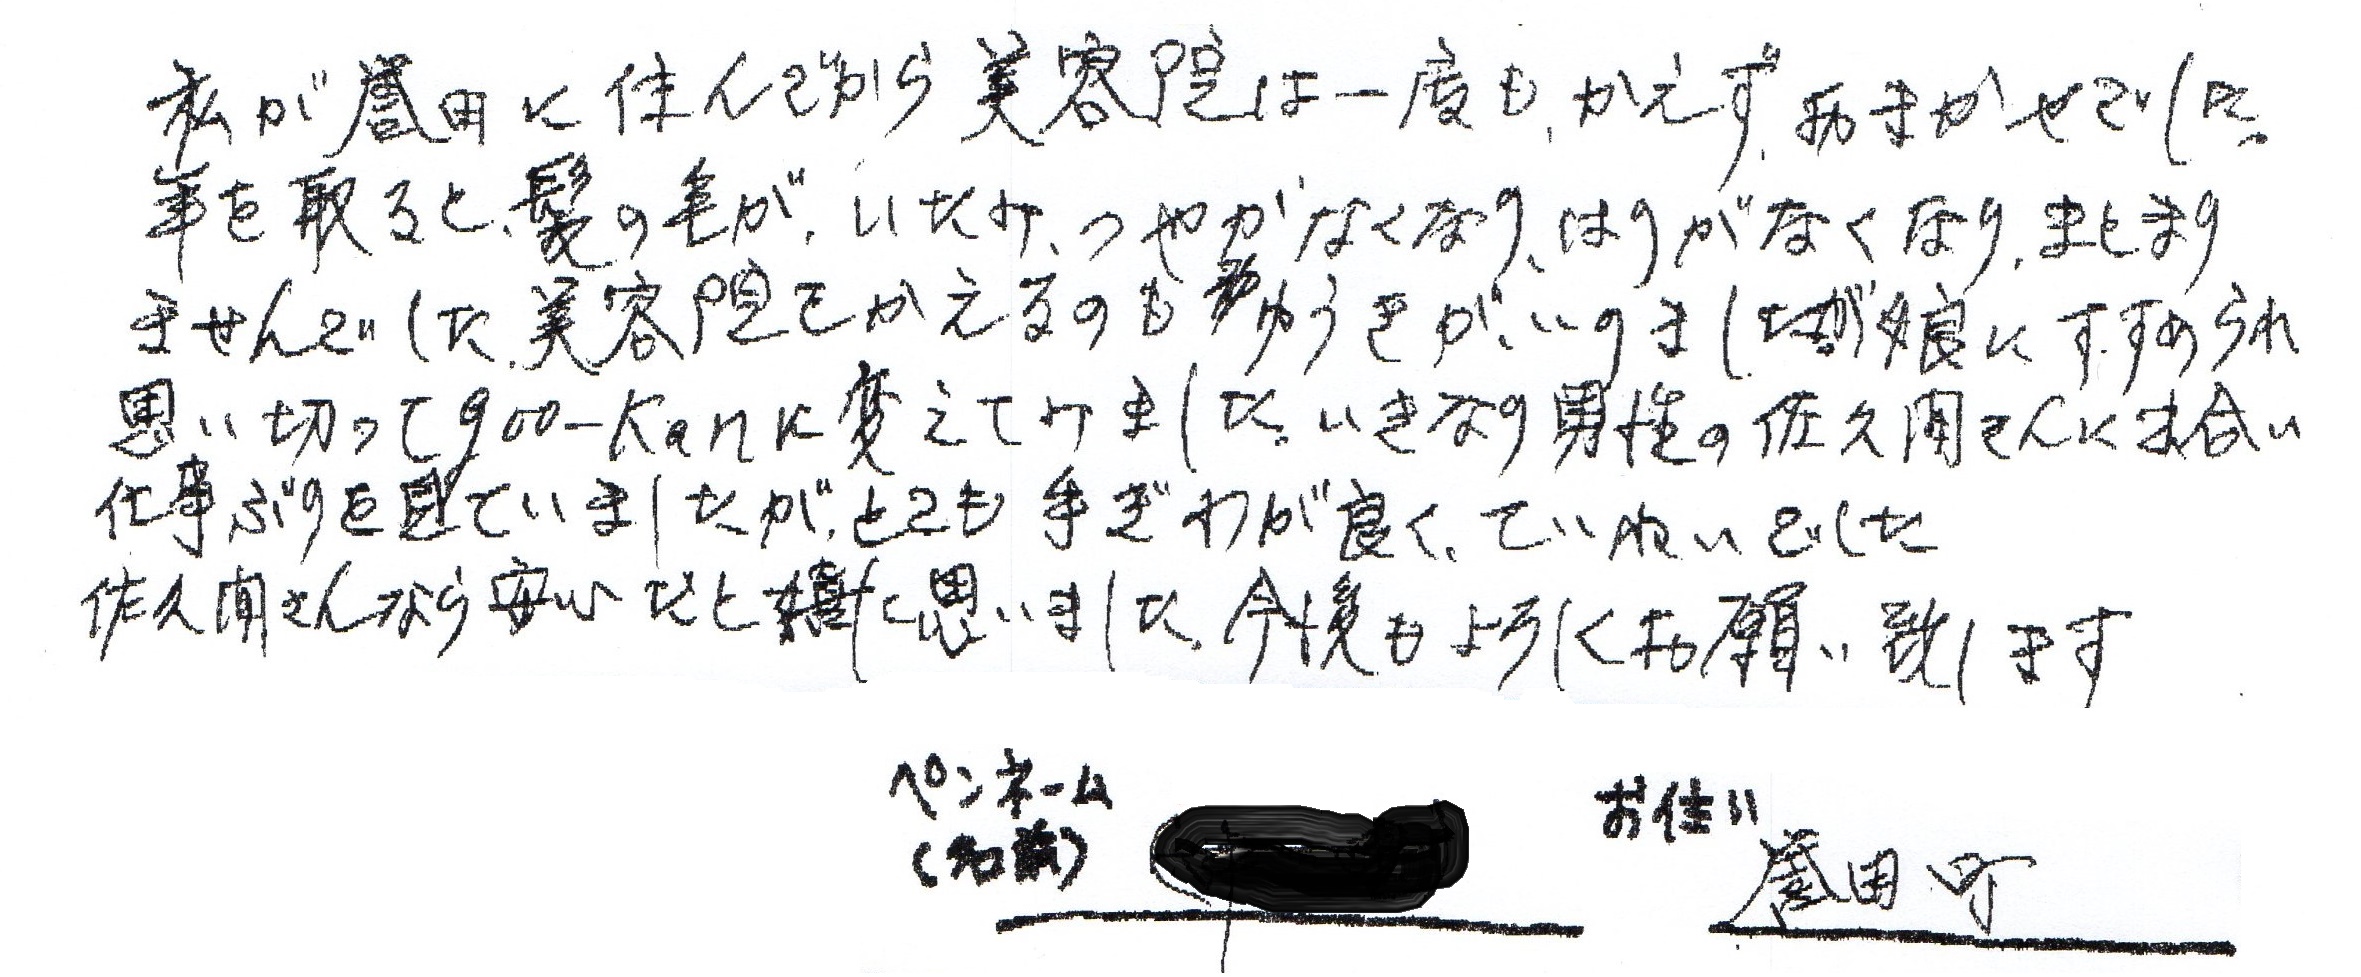 私が誉田に住んでから美容院は一度も、かえず、おまかせでした。
年を取ると、髪の毛が、いたみ、つやがなくなり、はりがなくなり、まとまり
ませんでした。美容院をかえるのもゆうきが、いりましたが娘にすすめられ
思い切ってgoo-Kanに変えてみました。いきなり男性の佐久間さんにお会い
仕事ぶりを見ていましたが、とても手ぎわが良く、ていねいでした
佐久間さんなら安心だと思いました。今後もよろしくお願い致します
ペンネーム
(名前)
お住い
誉田町